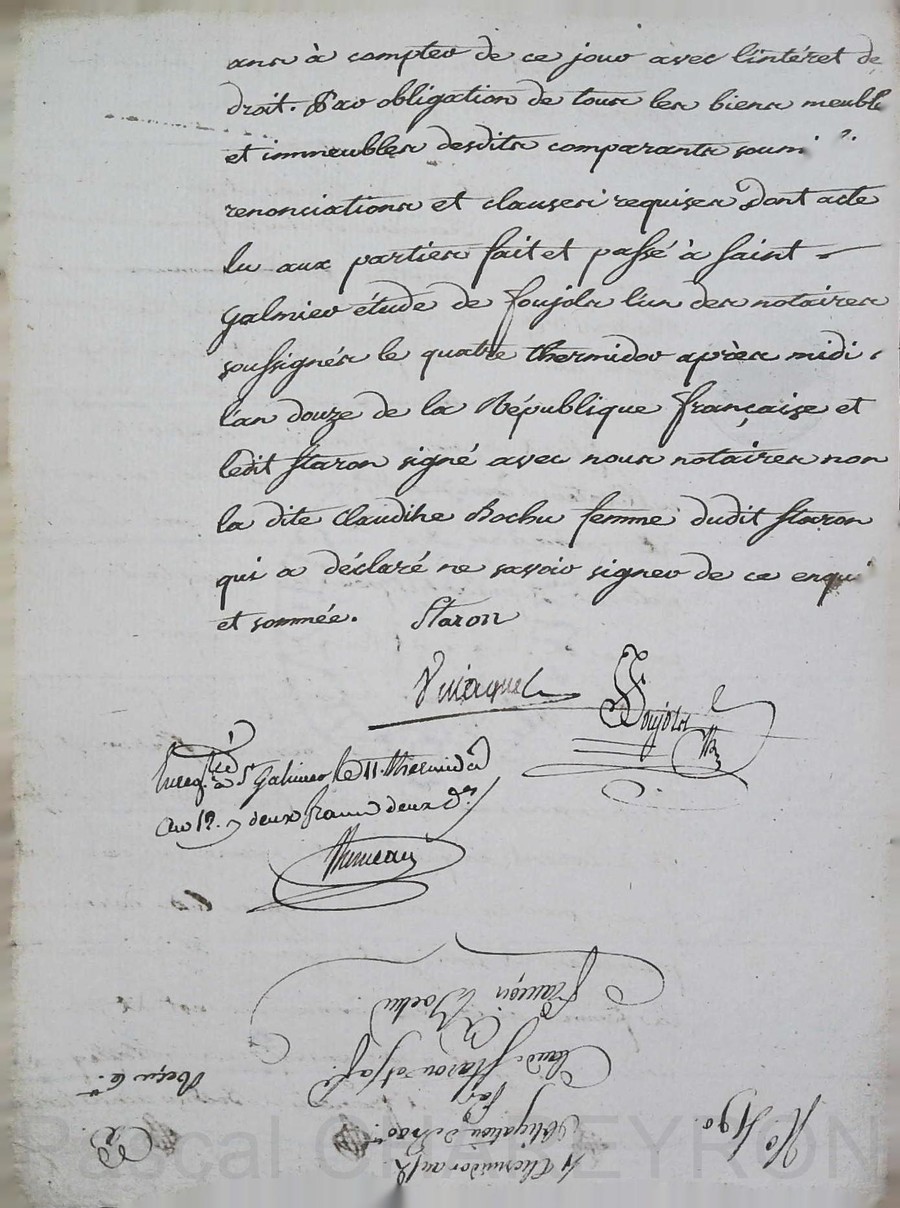 ans à compter de ce jour avec l'intéret de
droit. Par obligation de tous les biens meuble
et immeubles desdits comparants soumi
renonciations et clauses requises dont acte
lu aux parties fait et passé à Saint
Galmier étude de Foujols l'un des notaires
soussignés le quatre thermidor après midi
l'an douze de la République française et
ledit Staron signé avec nous notaires non
la dite Claudine Bochu femme dudit Staron
qui a déclaré ne savoir signer de ce enqui
et sommée. Staron
Foujols
Enreg. à St Galmier le 11 thermidor
an 12. deux francs deux
4 Thermidor an 12
Obligation de
par
Claude Staron et sa fe
à
François Bochu
Reçu
No 490
Pascal CHALEYRON